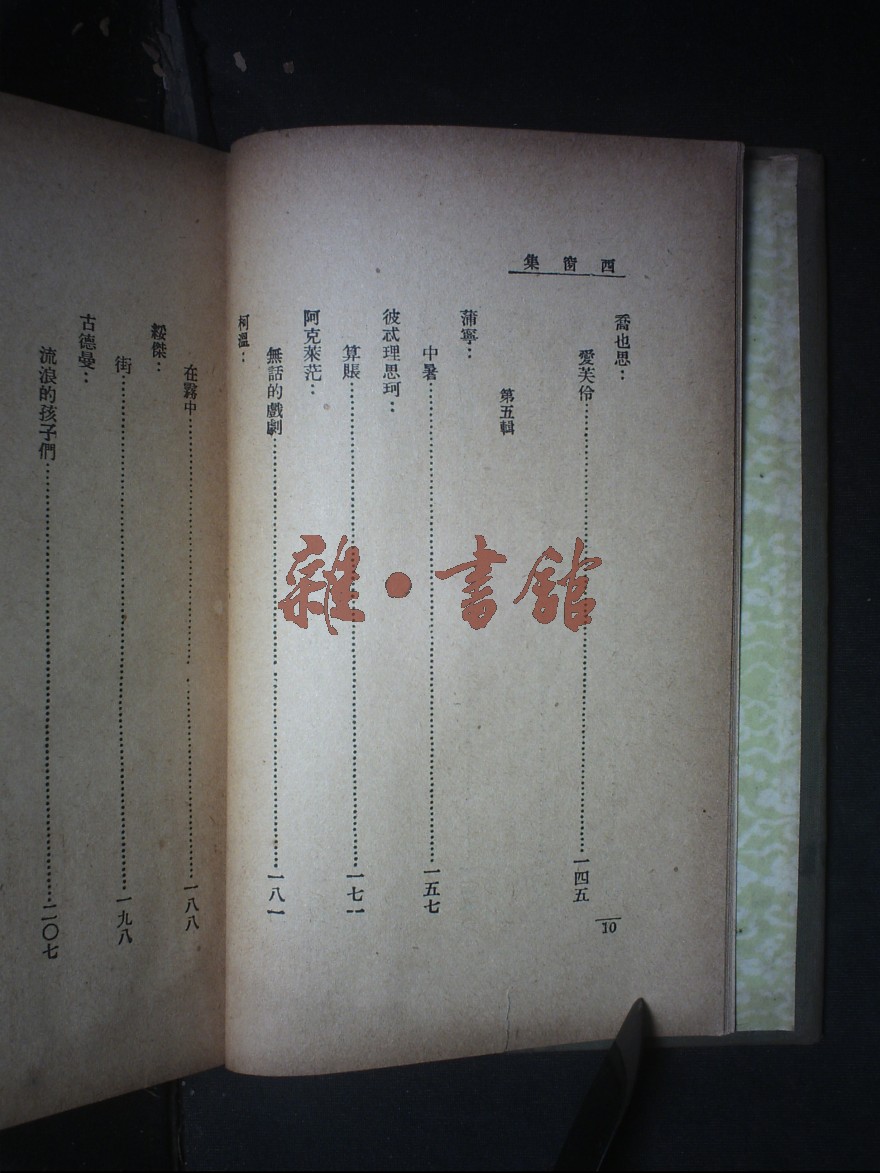 西窗集
喬也思：
愛芙伶…………一四五
第五輯
蒲寧：
中暑…………一五七
彼忒理思珂：
算賬…………一七一
阿克萊茫：
無話的戲劇…………一八一
10
柯溫：
在霧中…………一八八
綏傑：
街…………一九八
古德曼：
流浪的孩子們…………二〇七
雜·書館